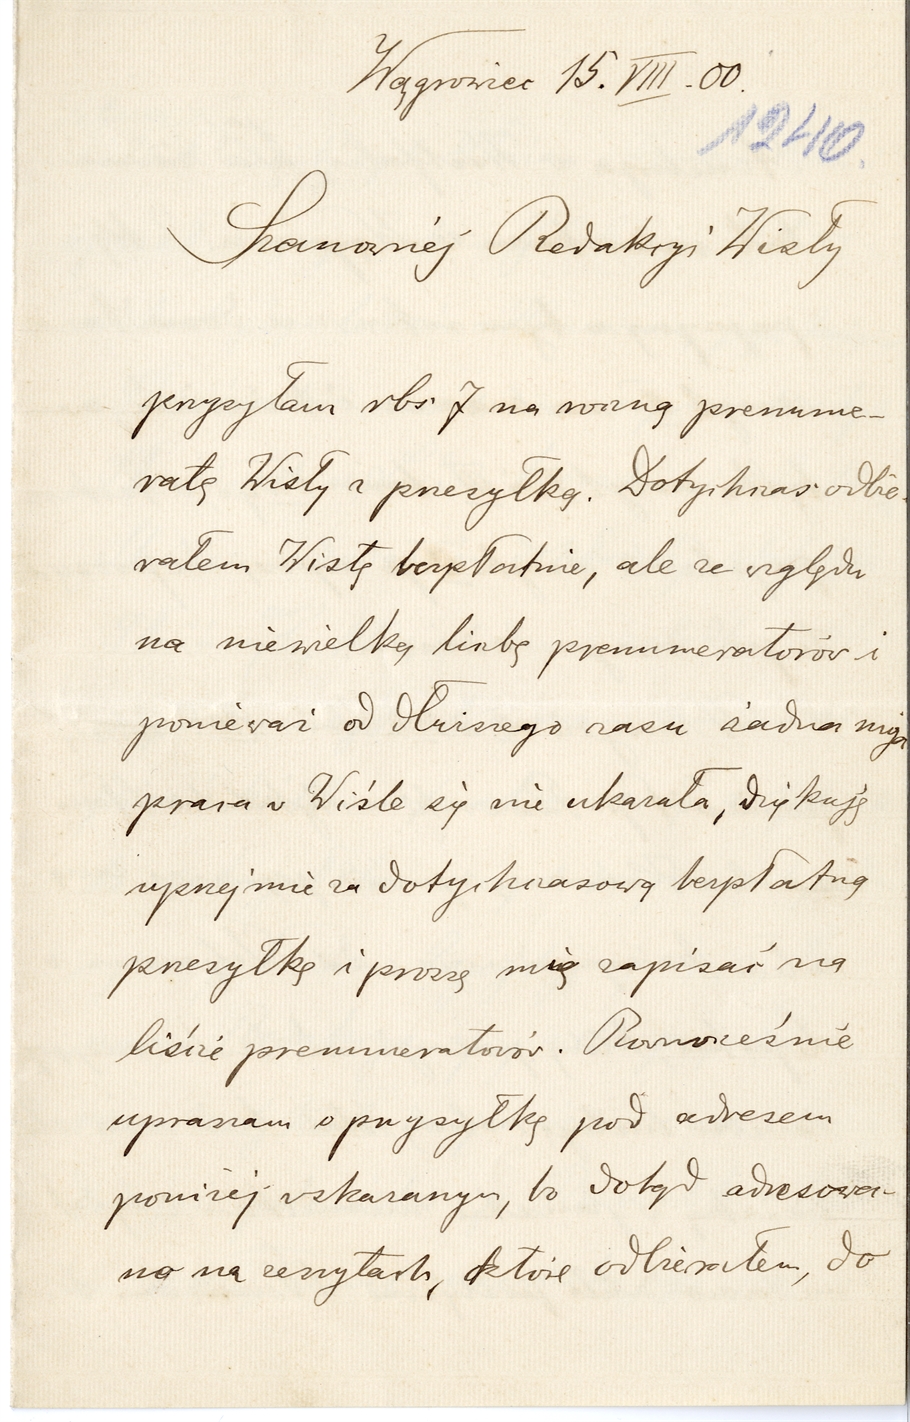 Wągrowiec 15. VIII. 00.
1240.
Szanownéj Redakcyi Wisły
przysyłam rbs 7 na roczną prenume-
ratę Wisły z przesyłką. Dotychczas odbie-
rałem Wisłę bezpłatnie, ale ze względu
na niewielką liczbę prenumeratorów i
ponieważ od dłuższego czasu żadna moja
praca w Wiśle się nie ukazała, dziękuję
uprzejmie za dotychczasową bezpłatną
przesyłkę i proszę mię zapisać na
liście prenumeratorów. Równocześnie
upraszam o przysyłkę pod adresem
poniżej wskazanym, bo dotąd adresowa-
no na zeszytach, które odbierałem, do